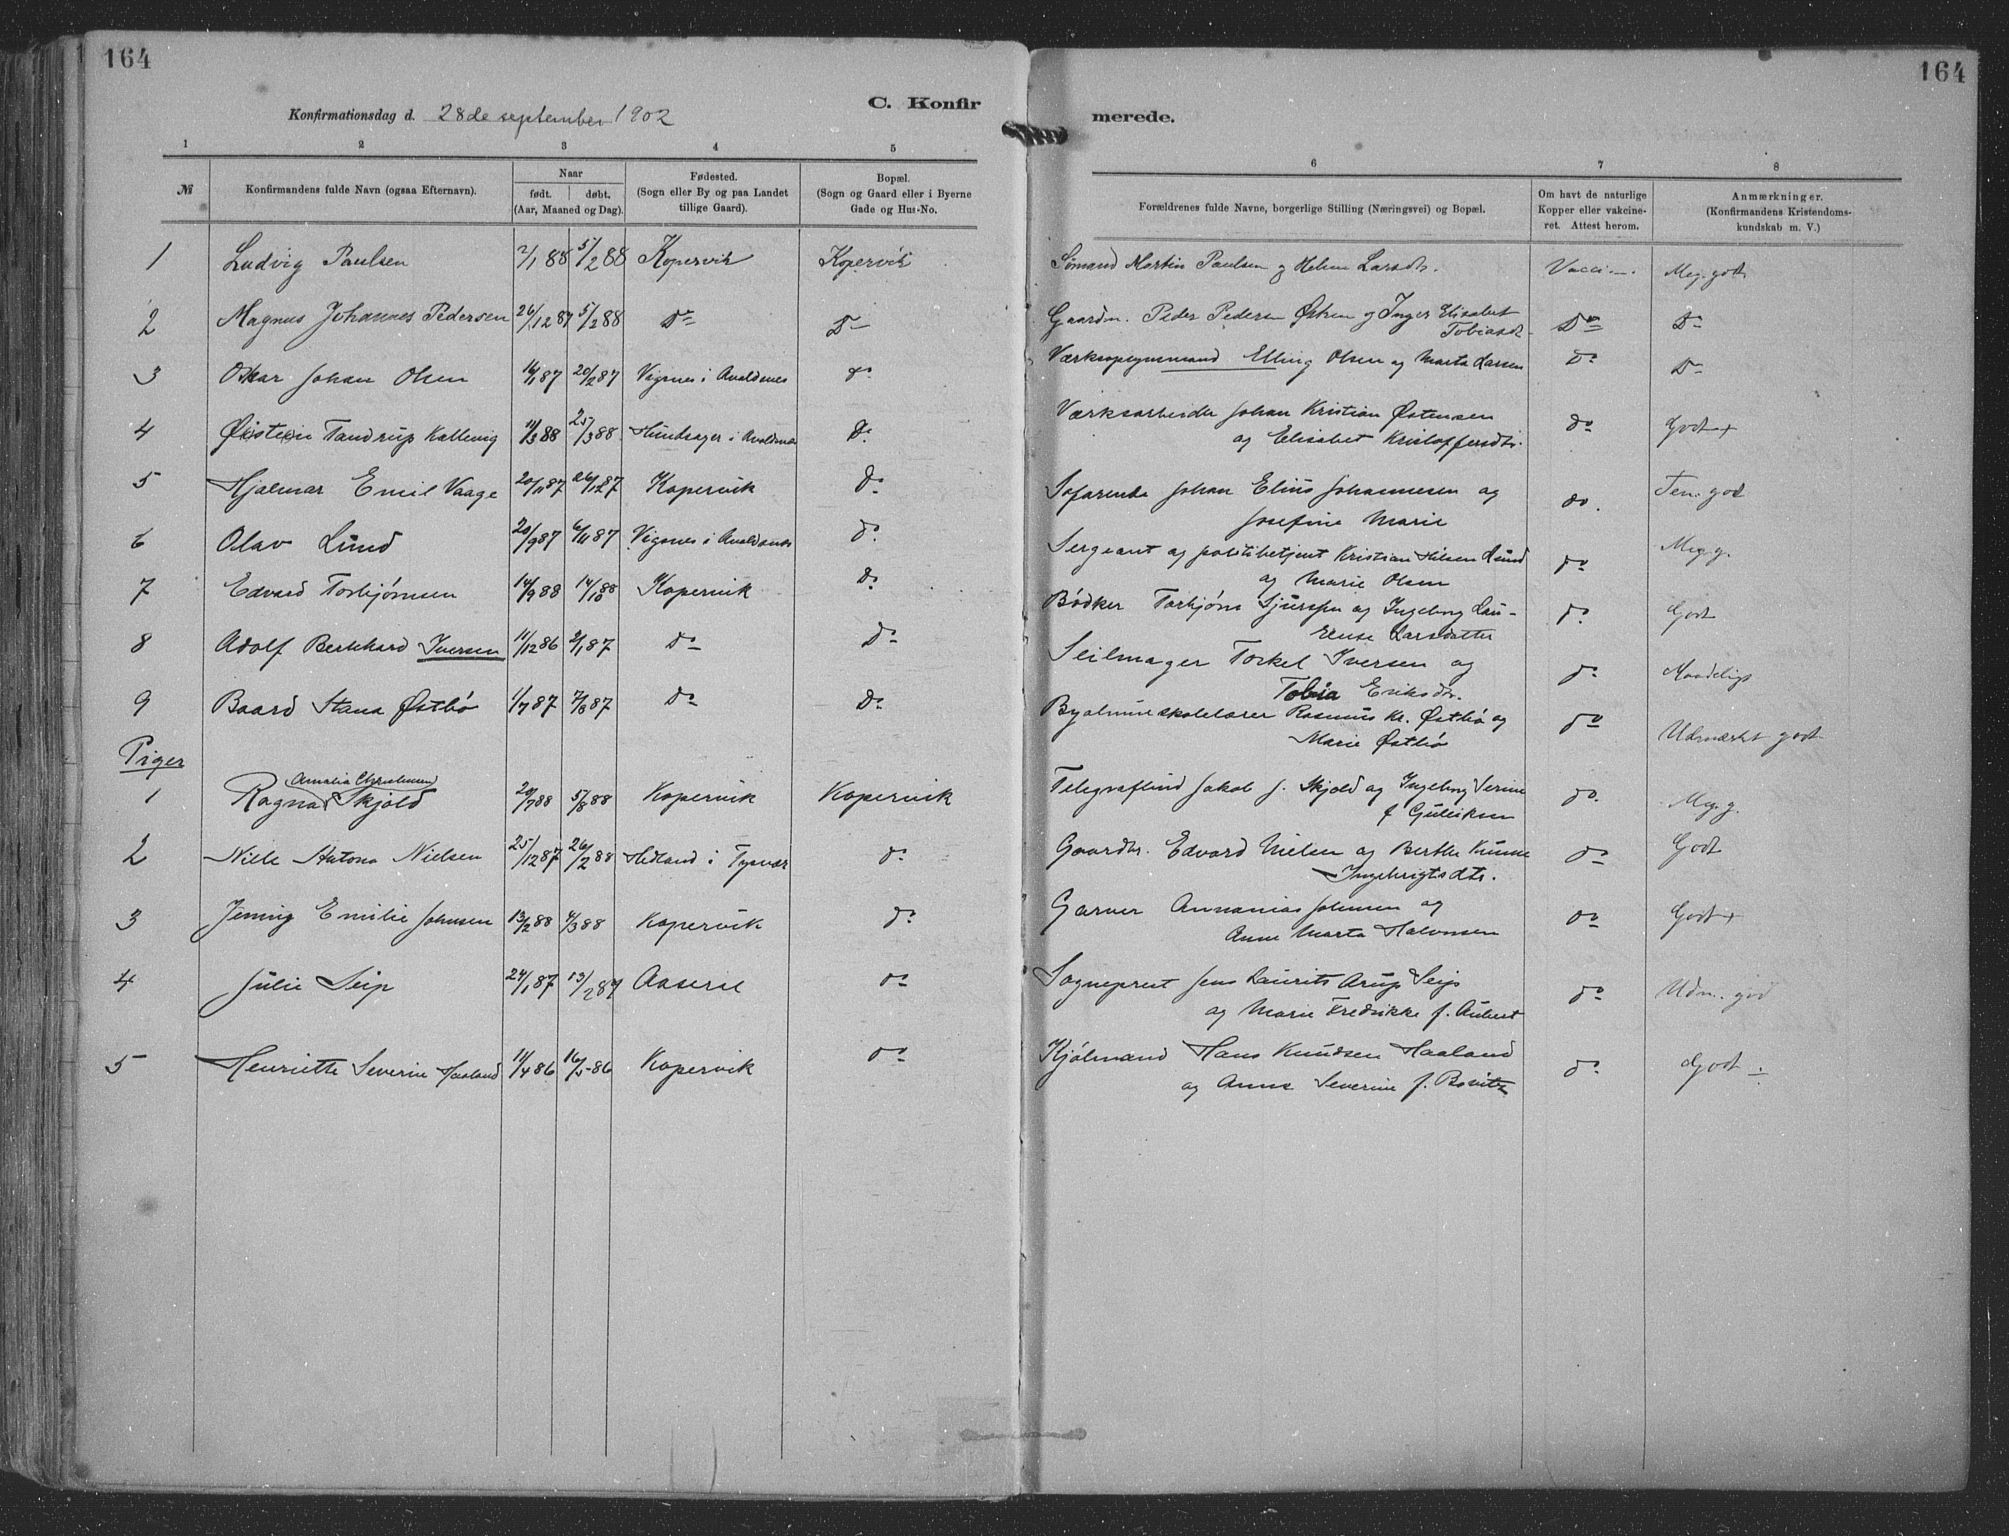 164
164
Konfirmationsdag d. 28de september 1902
C. Konfirmerede.
1 2 3 4 5 6 7 8
№
Konfirmandens fulde Navn (ogsaa Efternavn).
Naar
født. døbt.
(Aar, Maaned og Dag).
Fødested.
(Sogn eller By og paa Landet
tillige Gaard).
Bopæl.
(Sogn og Gaard eller i Byerne
Gade og Hus-No.
Forældrenes fulde Navne, borgerlige Stilling (Næringsvei) og Bopæl.
Om havt de naturlige
Kopper eller vakcine-
ret. Attest herom.
Anmærkninger.
(Konfirmandens Kristendoms-
kundskab m. V.)
1 Ludvig Paulsen 7/1 88 5/2 88 Kopervik Kopervik Sømand Martin Paulsen og Helene Larsdtr. Vacci Meg. godt
2 Magnus Johannes Pedersen 26/12 87 5/2 88 Do Do Gaardm. Peder Pedersen Østren og Inger Elisabet
Tobiasdtr. Do Do
3 Oskar Johan Olsen 16/1 87 20/2 87 Vigsnes i Avaldsnes do Elling Olsen og Marta Larsen Do Do
4 Øistein Tandrup Kallevig 11/3 88 25/3 88 Hundsager i Avaldsnes Do Værksarbeider Johan Kristian Østensen
og Elisabet Kristoffersdtr. do Godt +
5 Hjalmar Emil Vaage 20/11 87 26/12 87 Kopervik do Søfarende Johan Elius Johannesen og
Josefine Marie do. Tem. god
6 Olav Lund 20/9 87 6/11 87 Vigsnes i Avaldsnes do. Sergeant og politibetjent Kristian Nilsen Lund
og Marie Olsen do Meg. g.
7 Edvard Torbjørnsen 14/9 88 14/10 88 Kopervik do Bødker Torbjørn Sjursen og Ingeborg Lau-
rense Larsdatter do Godt
8 Adolf Bernhard Iversen 11/12 86 2/1 87 do do Seilmager Torkel Iversen og
Tobia Eriksdtr. do Maadelig
9 Baard Stana Østbø 1/7 87 7/8 87 do do Byalmueskolelærer Rasmus Kr. Østbø og
Marie Østbø do Udmærket godt
Piger
Amalia
1 Ragna Skjold 20/7 88 5/8 88 Kopervik Kopervik Jakob J. Skjold og Ingeborg Serine
f Guliksen do. Meg. g.
2 Nille Antona Nielsen 25/12 87 26/2 88 Hetland i Tysvær do Gaardbr. Edvard Nielsen og Berthe
Ingebrigtsdtr. do Godt
3 Jenny Emilie Johnsen 13/2 88 4/3 88 Kopervik do Garver Annanias Johnsen og
Anne Marta Halvorsen do Godt +
4 Julie Seip 24/1 87 13/2 87 Aaseral do Sogneprest Jens Laurits Arup Seip
og Marie Fredrikke f. Aubert do Udm. god
5 Henriette Severine Haaland 11/4 86 16/5 86 Kopervik do Kjølmand Hans Knudsen Haaland
og Anne Severine f. do Godt ÷